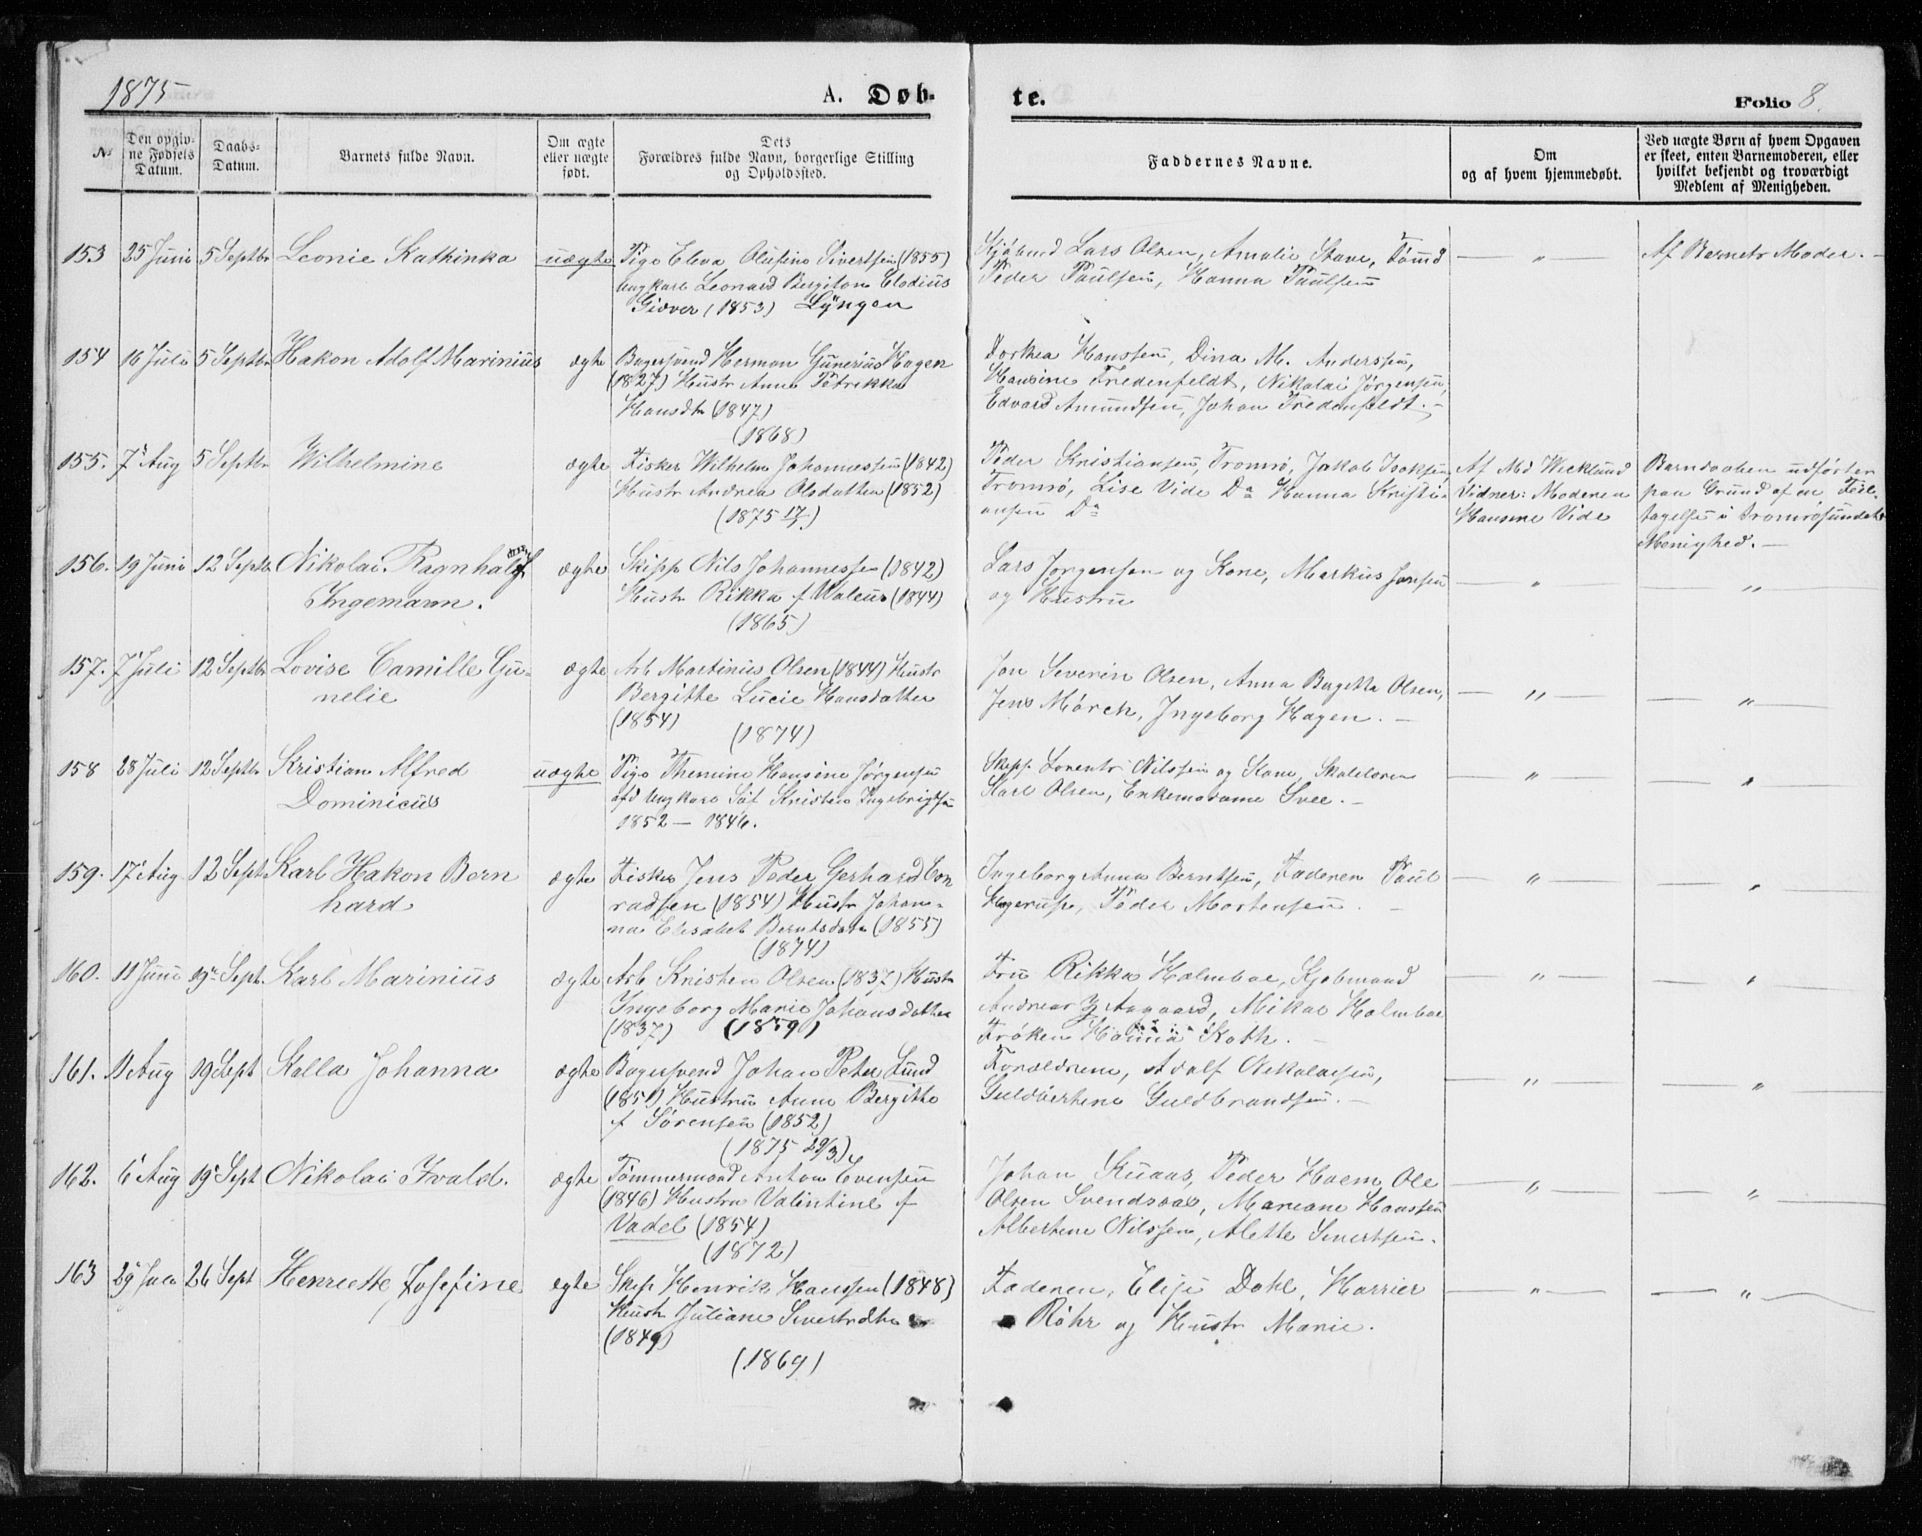 1875
A. Døb-
te.
Folio 8.
№
Den opgiv-
ne Fødsels
Datum.
Daabs-
Datum.
Barnets fulde Navn.
Om ægte
eller uægte
født.
Dets
Forældres fulde Navn, borgerlige Stilling
og Opholdssted.
Faddernes Navne.
Om
og af hvem hjemmedøbt.
Ved uægte Børn af hvem Opgaven
er skeet, enten Barnemoderen, eller
hvilket bekjendt og troværdigt
Medlem af Menigheden.
153 25 Juni 5 Septbr Leonie Kathinka uægte
Pige Eleva Olufine Sivertsen (1855)
Ungkarl Leonard Bergiton Elodius
Giæver (1853) Lyngen
Lars Olsen, Amalie Stave,
Peder Paulsen, Hanna Paulsen
— " —
Af Barnets Moder. —
154 16 Juli 5 Septbr Hakon Adolf Marinius ægte
Bagersvend Herman Gunerius Hagen
(1827) Hustr Anna Petrikka
Hansdtr (1847)
(1868)
Dorthea Hanssen, Dina M. Anderssen,
Hansine Fredenfeldt, Nikolai Jørgensen,
Edvard Amundsen, Johan Fredenfeldt. —
155. 7 Aug 5 Septbr Wilhelmine ægte
Fisker Wilhelm Johannessen (1842)
Hustr Andrea Olsdatter (1852)
(1875 17/5)
Peder Kristiansen, Tromsø, Jakob Isaksen
Tromsø, Lise Vide Da Hanna Kristi-
ansen Da
Af Md Wicklund
Vidner: Moderen
Hansine Vide
Barnedaaben udført her
paa Grund af en Feil-
tagelse i Tromsøsundets
Menighed. —
156. 19 Juni 12 Septbr Nikolai Ragnhalf
Ingemann. ægte
Skipp Nils Johannessen (1842)
Hustr Rikka f Waleur (1844)
(1865)
Lars Jørgensen og Kone, Markus Jensen
og Hustru
— " —
— " —
157. 7 Juli 12 Septbr Lovise Camille Gu-
nelie ægte
Arb Martinus Olsen (1844) Hustr
Bergitte Lucie Hansdatter
(1854)
(1874)
Jon Severin Olsen, Anna Bergitta Olsen,
Jens Mørch, Ingeborg Hagen. —
— " —
— " —
158 28 Juli 12 Septbr Kristian Alfred
Dominicus uægte
Pige Themine Hansine Jørgensen
og Ungkarl Søf Kristen Ingebrigtsen
1852 — 1846.
Skipp. Lorents Nilssen og Kone, Skolelærer
Karl Olsen, Enkemadame Svee. —
— " —
— " —
159. 17 Aug 12 Sept Karl Hakon Bern
hard ægte
Fisker Jens Peder Gerhard Con
radsen (1854) Hustr Johan-
na Elisabet Berntsdatr (1855)
(1874)
Ingeborg Anna Berntsen, Faderen Paul
Hegerup, Peder Mortensen. —
— " —
— " —
160. 11 Juni 19 Sept. Karl Marinius ægte
Arb Kristen Olsen (1837) Hustr
Ingeborg Marie Johansdatter
(1837) (1859)
Fru Rikka Holmboe, Kjøbmand
Andreas Z Aagaard, Mikal Holmboe
Frøken Hanna Koth. —
— " —
— " —
161. 11 Aug 19 Sept Kalla Johanna ægte
Bagersvend Johan Peter Lund
(1851) Hustru Anna Bergitte
f Sørensen (1852)
(1875 29/3)
Forældrene, Adolf Nikolaisen,
Guldbrandsen. —
— " —
— " —
162. 6 Aug 19 Sept Nikolai Ivald. ægte
Tømmermand Anton Evensen
(1846) Hustru Valentine f
Vadel (1854)
(1872)
Johan Kuaas, Peder Hoem, Ole
Olsen Svendsaas, Mariane Hanssen
Albertine Nilssen, Alette Sivertsen.
— " —
— " —
163 29 Juli 26 Sept Henriette Josefine egte
Skip Henrik Hanssen (1848)
Hustr Juliane Sivertsdtr
(1849)
(1869)
Faderen, Elise Dahl, Harrier
Røhr og Hustr Marie.
— " —
— " —